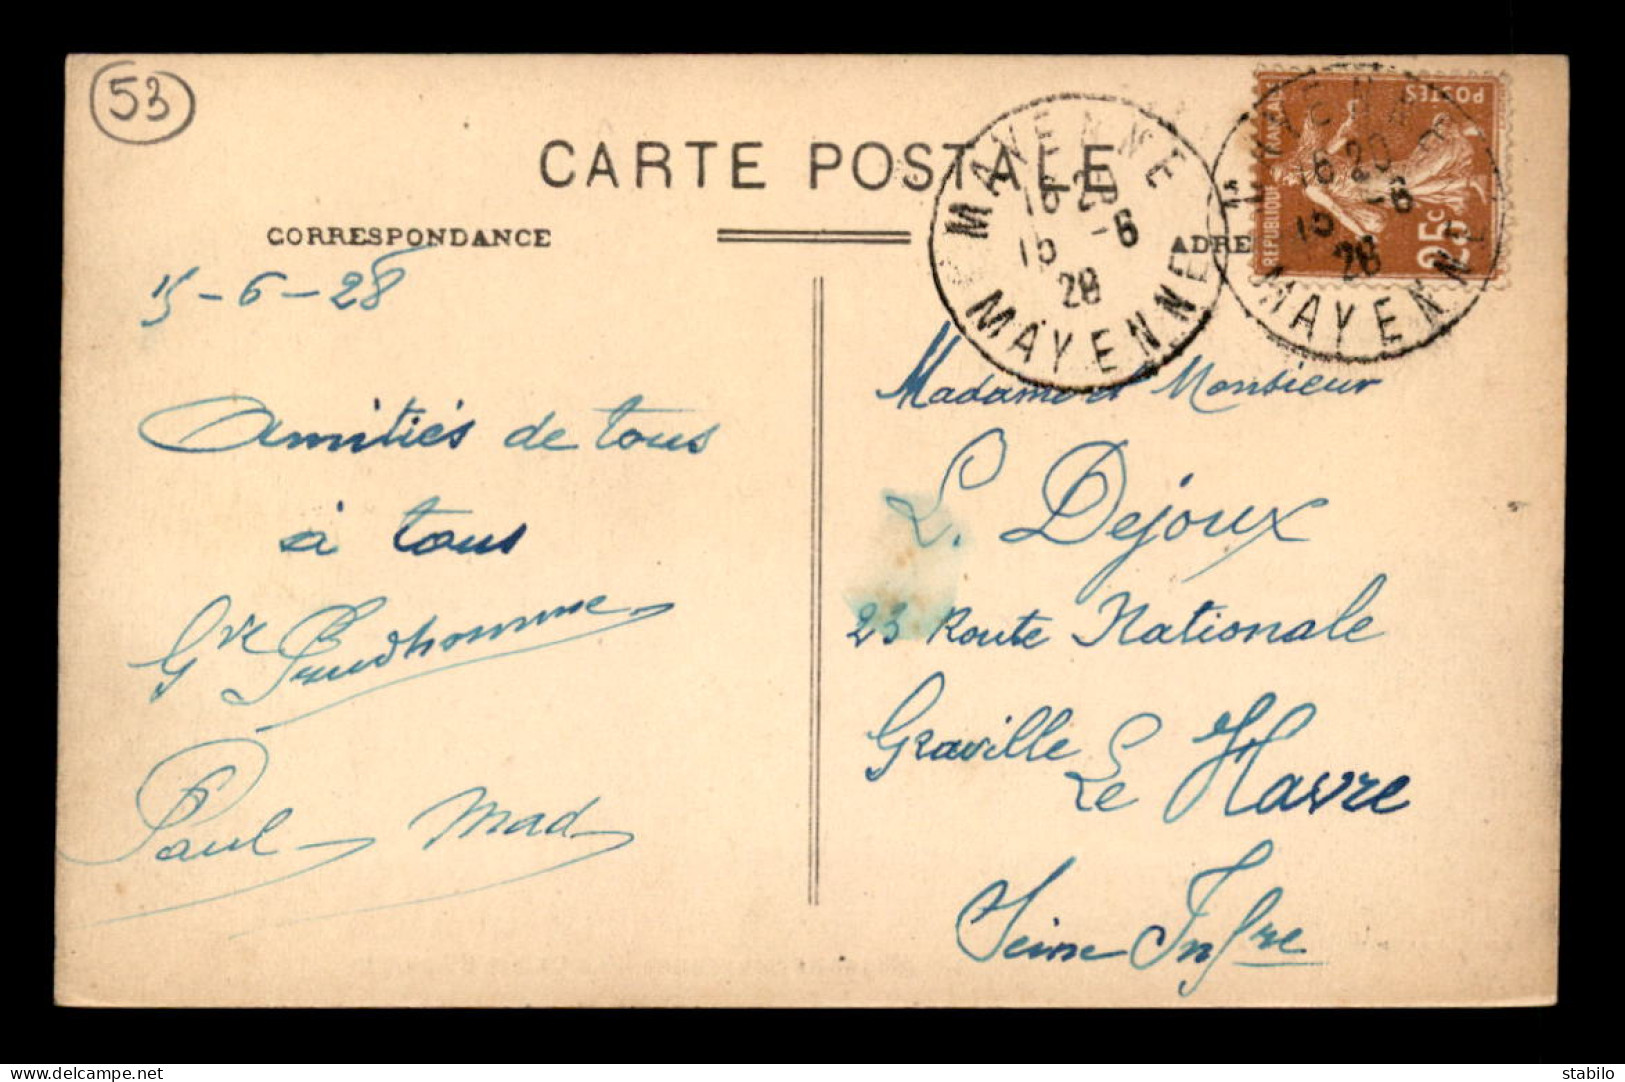 53
CARTE POSTALE
CORRESPONDANCE
ADRE
MAYENNE
16 25
15 -6
28
MAYENNE
16 25
15 -6
28
MAYENNE
REPUBLIQUE FRANÇAISE
POSTES
25c
15-6-28
Amitiés de tous
à tous
Gve Prudhomme
Paul Mad
Madame et Monsieur
L. Dejoux
23 Route Nationale
Graville Le Havre
Seine Infre
www.delcampe.net
stabilo